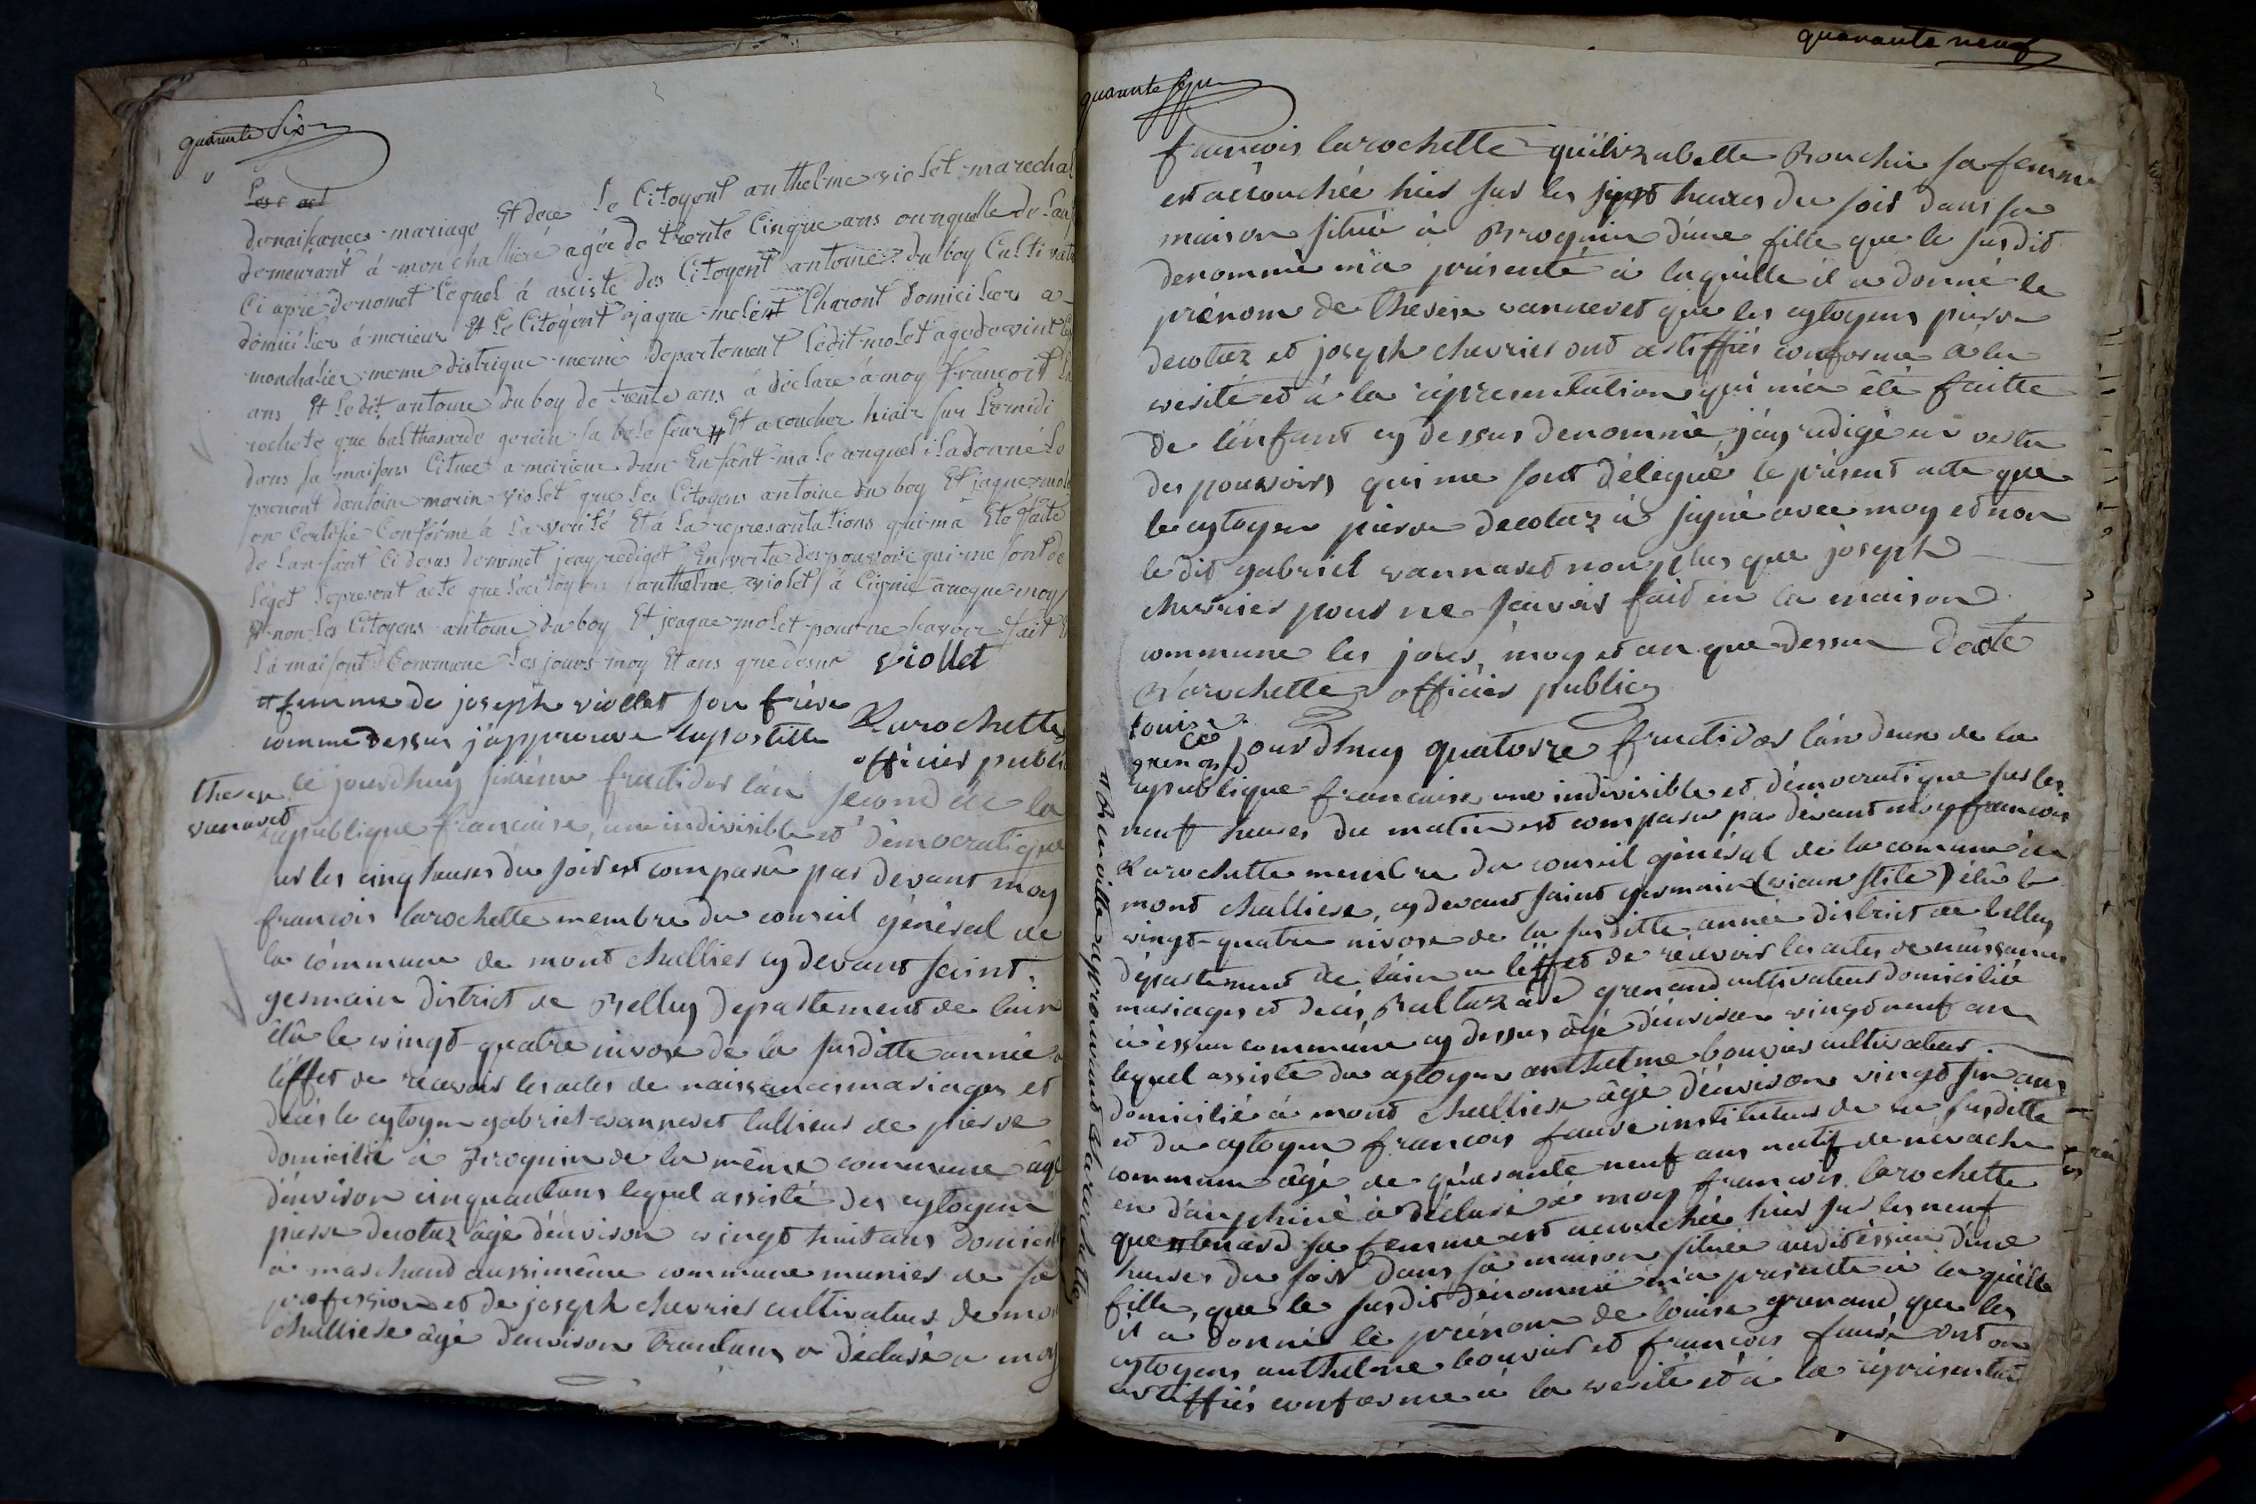 quarante Six
Les act
de naisances mariage Et dece Le Citoyent anthelme violet marechal
demeurant á monchalliere agée de trente Cinque ans ou
Ci aprè denomet Lequel á asciste des Citoyent antoine du boy Cultivate
domicilier á merieux Et Le Citoyent jaque molet Charont domicilier a
monchalier meme distrique meme Departement Ledit molet agé de vint
ans Et Ledit antoine du boy de trente ans á déclare á moy françoit La
rochete que balthasarde gerein sa bele seur # Et acoucher hiair sur Lemidi
dans sa maisons Cituet a meirieux dun Enfant male auquel il a donné Le
prenont dantoine marin violet que Les Citoyens antoine du boy Et jaque molet
on Certifié Conforme á La verité Et á La representations qui ma Eté faite
de Lanfant Ci desus denomet jeay rediget En vertu des pouvoire qui me sont de
léget Le present acte que Le Citoyen anthelme violet á Cignié avecque moy
Et non Les Citoyens antoine du boy Et jeaque molet pour ne savoir fait
Lá maisont Commune Les jours moy Et ans que desur viollet
# femme de joseph viollet son frère
comme dessus j'approuve lapostille Larochette
officier public
therese
vanaret
ce jourdhuy sixieme fructidor l'an second de la
republique francaise, une indivisible et démocratique
sur les cinq heures du soir est comparû par devant moy
francois larochette membre du conseil général de
la cómmune de mont challier cy devant saint
germain district de Belley departement de lain
élû le vingt-quatre nivose de la susditte année a
léffet de récevoir les actes de naissances mariages et
décés le cytoyen gabriel vanneret tallieur de pierre
domicilié à Brognin de la même commune âgé
d'énviron cinquantans lequel assisté des cytoyens
pierre decotaz âgé d'énviron vingt huit ans domicilié
à marchand aussi même commune munier de sa
profession et de joseph chevrier cultivateur de mont
challiere âgé d'énviron trantans a déclaré a moy
quarante neuf
quarante sept
francois larochette qu'élizabette Bouchin sa femme
est accouchée hier sur les sept heures du soir dans sa
maison située à Brognin d'une fille que le susdit
denommé m'a présenté à laquelle il a donné le
prénom de therese vanneret que les cytoyens pierre
decotaz et joseph chevrier ont certiffiés conforme a la
verité et à la répresentation qui m'a été faitte
de l'énfant cy dessus denommé j'ay redigé en vertu
des pouvoirs qui me sont délegué le présent acte que
le cytoyen pierre decotaz à signé avec moy et non
le dit gabriel vannaret non plus que joseph
chevrier pour ne sçavoir fait en la maison
commune les jour, moy et an que dessus Decote
Larochette officier public
Louise
grenand
Ce jourdhuy quatorze fructidor l'an deux de la
republique francaise une indivisible et démocratique sur les
neuf heures du matin est comparu par devant moy francois
Larochette membre du conseil général de la commune de
mont challiere, cy devant saint germain (vieux stile) élû le
vingt-quatre nivose de la susditte année district de belley
département de l'ain a léffet de récevoir les actes de naissances
mariages et decés, Baltazard grenand cultivateur domicilié
à éssieu commune cy dessus âgé d'énviron vingt neuf ans
lequel assisté du cytoyen anthelme bouvier cultivateur
domicilié à mont challiere âgé d'énviron vingt six ans
et du cytoyen francois faure instituteur de la susditte
commune âgé de quarante neuf ans natif de névache
en dauphiné à déclaré à moy francois larochette
que # benard sa femme est accouchée hier sur les neuf
heures du soir dans sa maison située audit éssieu d'une
fille, que le susdit dénommé m'a présenté à laquelle
il a donné le prénom de louise grenand que les
cytoyens anthelme bouvier et francois faure ont
certiffiés conforme a la verité et à la répresentation